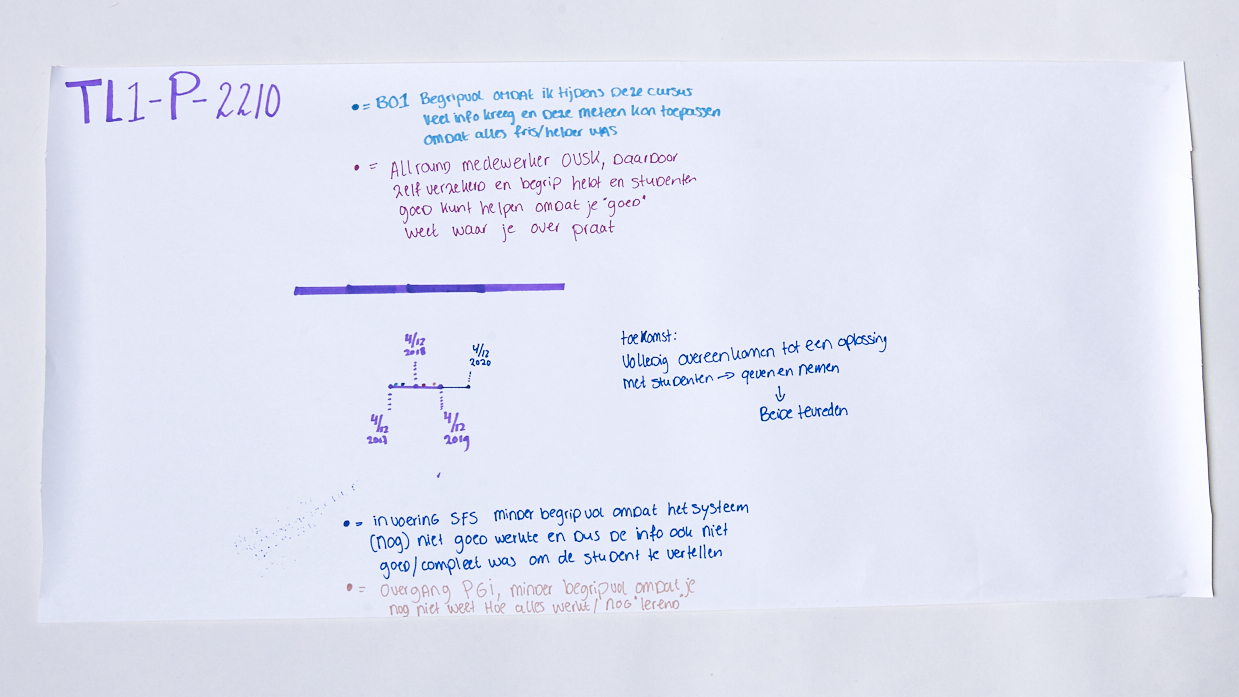 TL1-P-2210
• = BO1 Begripvol omdat ik tijdens deze cursus
veel info kreeg en deze meteen kon toepassen
omdat alles fris/helder was
• = Allround medewerker OUSK, daardoor
zelf verzekerd en begrip hebt en studenten
goed kunt helpen omdat je "goed"
weet waar je over praat
4/12
2018
4/12
2020
4/12
2017
4/12
2019
toekomst:
Volledig overeenkomen tot een oplossing
met studenten → geven en nemen
↓
Beide tevreden
• = invoering SFS minder begripvol omdat het systeem
(nog) niet goed werkte en dus de info ook niet
goed/compleet was om de student te vertellen
• = Overgang PGi, minder begripvol omdat je
nog niet weet hoe alles werkt/"nog" lerend"